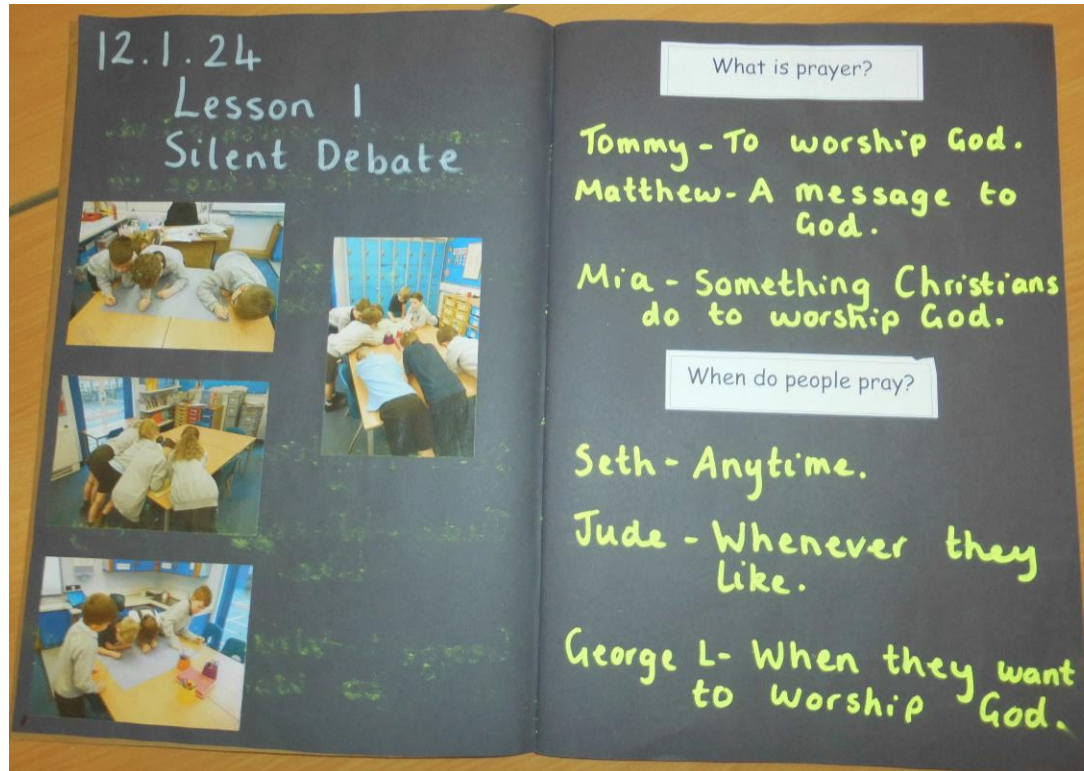 12.1.24
Lesson 1
Silent Debate
What is prayer?
Tommy - To worship God.
Matthew - A message to
God.
Mia - Something Christians
do to worship God.
When do people pray?
Seth - Anytime.
Jude - Whenever they
like.
George L - When they want
to worship God.